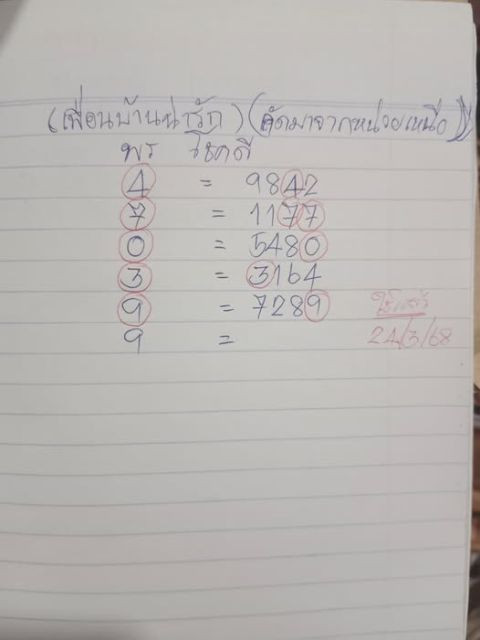 (เพื่อนบ้านน่ารัก) (คัดมาจากหน่วยเหนือ)
พร โชคดี
4 = 9842
7 = 1177
0 = 5480
3 = 3164
9 = 7289
9 = 24/3/68